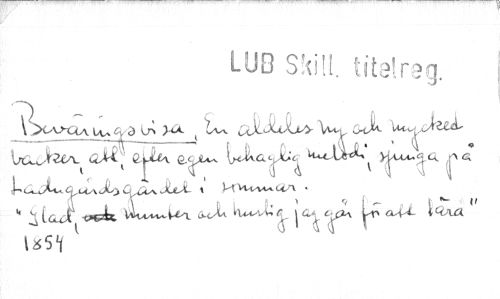 LUB Skill. titelreg.
Beväringsvisa, En aldeles ny och mycked
vacker, att, efter egen behaglig melodi, sjunga på
Ladugårdsgärdet i sommar.
"Glad, och munter och hurtig jag går för att lära"
1854